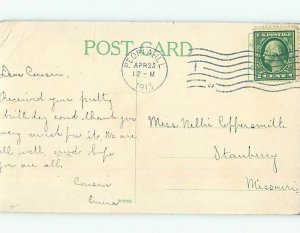 POST CARD
PEORIA, ILL
APR 23
12-M
1913
U.S. POSTAGE
1 CENT 1
Dear Cousin
Received your pretty
birthday card thank you
very much for it. We are
all well, and hope
you are all.
Cousin
Emma
Miss Nellie Coppersmith
Stanberry
Missouri